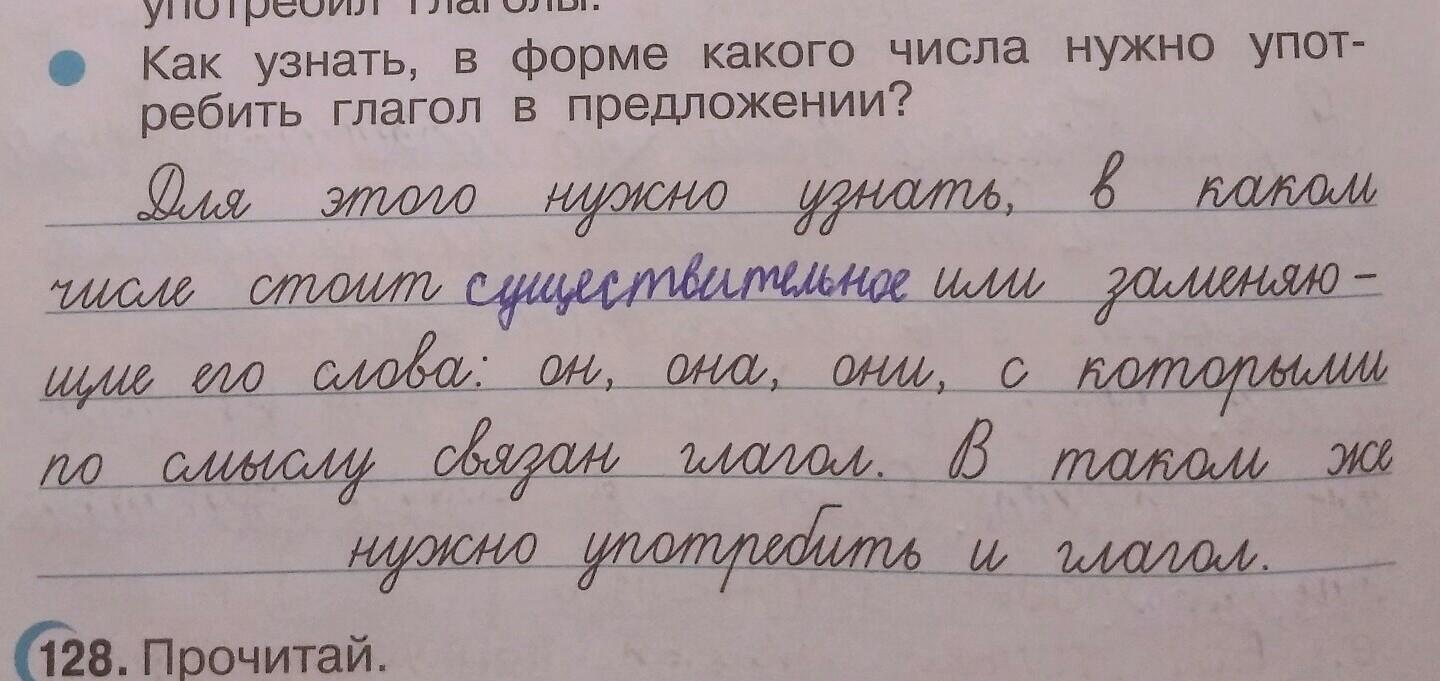 употребил глаголы.
Как узнать, в форме какого числа нужно упот-
ребить глагол в предложении?
Для этого нужно узнать, в каком
числе стоит существительное или заменяю-
щие его слова: он, она, они, с которыми
по смыслу связан глагол. В таком же
нужно употребить и глагол.
128. Прочитай.